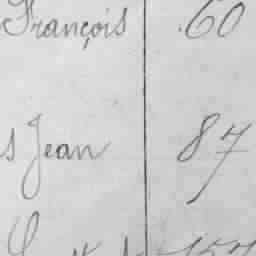 François 60
s Jean 87